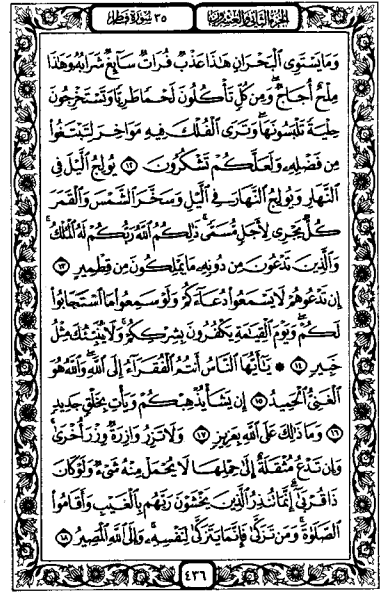 الجزء الثاني والعشرون ٣٥ سورة فاطر
وَمَا يَسْتَوِى الْبَحْرَانِ هَٰذَا عَذْبٌ فُرَاتٌ سَآئِغٌ شَرَابُهُ وَهَٰذَا
مِلْحٌ أُجَاجٌ وَمِن كُلٍّ تَأْكُلُونَ لَحْمًا طَرِيًّا وَتَسْتَخْرِجُونَ
حِلْيَةً تَلْبَسُونَهَا وَتَرَى الْفُلْكَ فِيهِ مَوَاخِرَ لِتَبْتَغُوا
مِن فَضْلِهِ وَلَعَلَّكُمْ تَشْكُرُونَ ١٢ يُولِجُ الَّيْلَ فِى
النَّهَارِ وَيُولِجُ النَّهَارَ فِى الَّيْلِ وَسَخَّرَ الشَّمْسَ وَالْقَمَرَ
كُلٌّ يَجْرِى لِأَجَلٍ مُّسَمًّى ذَٰلِكُمُ اللَّهُ رَبُّكُمْ لَهُ الْمُلْكُ
وَالَّذِينَ تَدْعُونَ مِن دُونِهِ مَا يَمْلِكُونَ مِن قِطْمِيرٍ ١٣
إِن تَدْعُوهُمْ لَا يَسْمَعُوا دُعَآءَكُمْ وَلَوْ سَمِعُوا مَا اسْتَجَابُوا
لَكُمْ وَيَوْمَ الْقِيَٰمَةِ يَكْفُرُونَ بِشِرْكِكُمْ وَلَا يُنَبِّئُكَ مِثْلُ
خَبِيرٍ ١٤ ۞ يَٰٓأَيُّهَا النَّاسُ أَنتُمُ الْفُقَرَآءُ إِلَى اللَّهِ وَاللَّهُ هُوَ
الْغَنِىُّ الْحَمِيدُ ١٥ إِن يَشَأْ يُذْهِبْكُمْ وَيَأْتِ بِخَلْقٍ جَدِيدٍ
١٦ وَمَا ذَٰلِكَ عَلَى اللَّهِ بِعَزِيزٍ ١٧ وَلَا تَزِرُ وَازِرَةٌ وِزْرَ أُخْرَىٰ
وَإِن تَدْعُ مُثْقَلَةٌ إِلَىٰ حِمْلِهَا لَا يُحْمَلْ مِنْهُ شَىْءٌ وَلَوْ كَانَ
ذَا قُرْبَىٰٓ إِنَّمَا تُنذِرُ الَّذِينَ يَخْشَوْنَ رَبَّهُم بِالْغَيْبِ وَأَقَامُوا
الصَّلَوٰةَ وَمَن تَزَكَّىٰ فَإِنَّمَا يَتَزَكَّىٰ لِنَفْسِهِ وَإِلَى اللَّهِ الْمَصِيرُ ١٨
٤٣٦